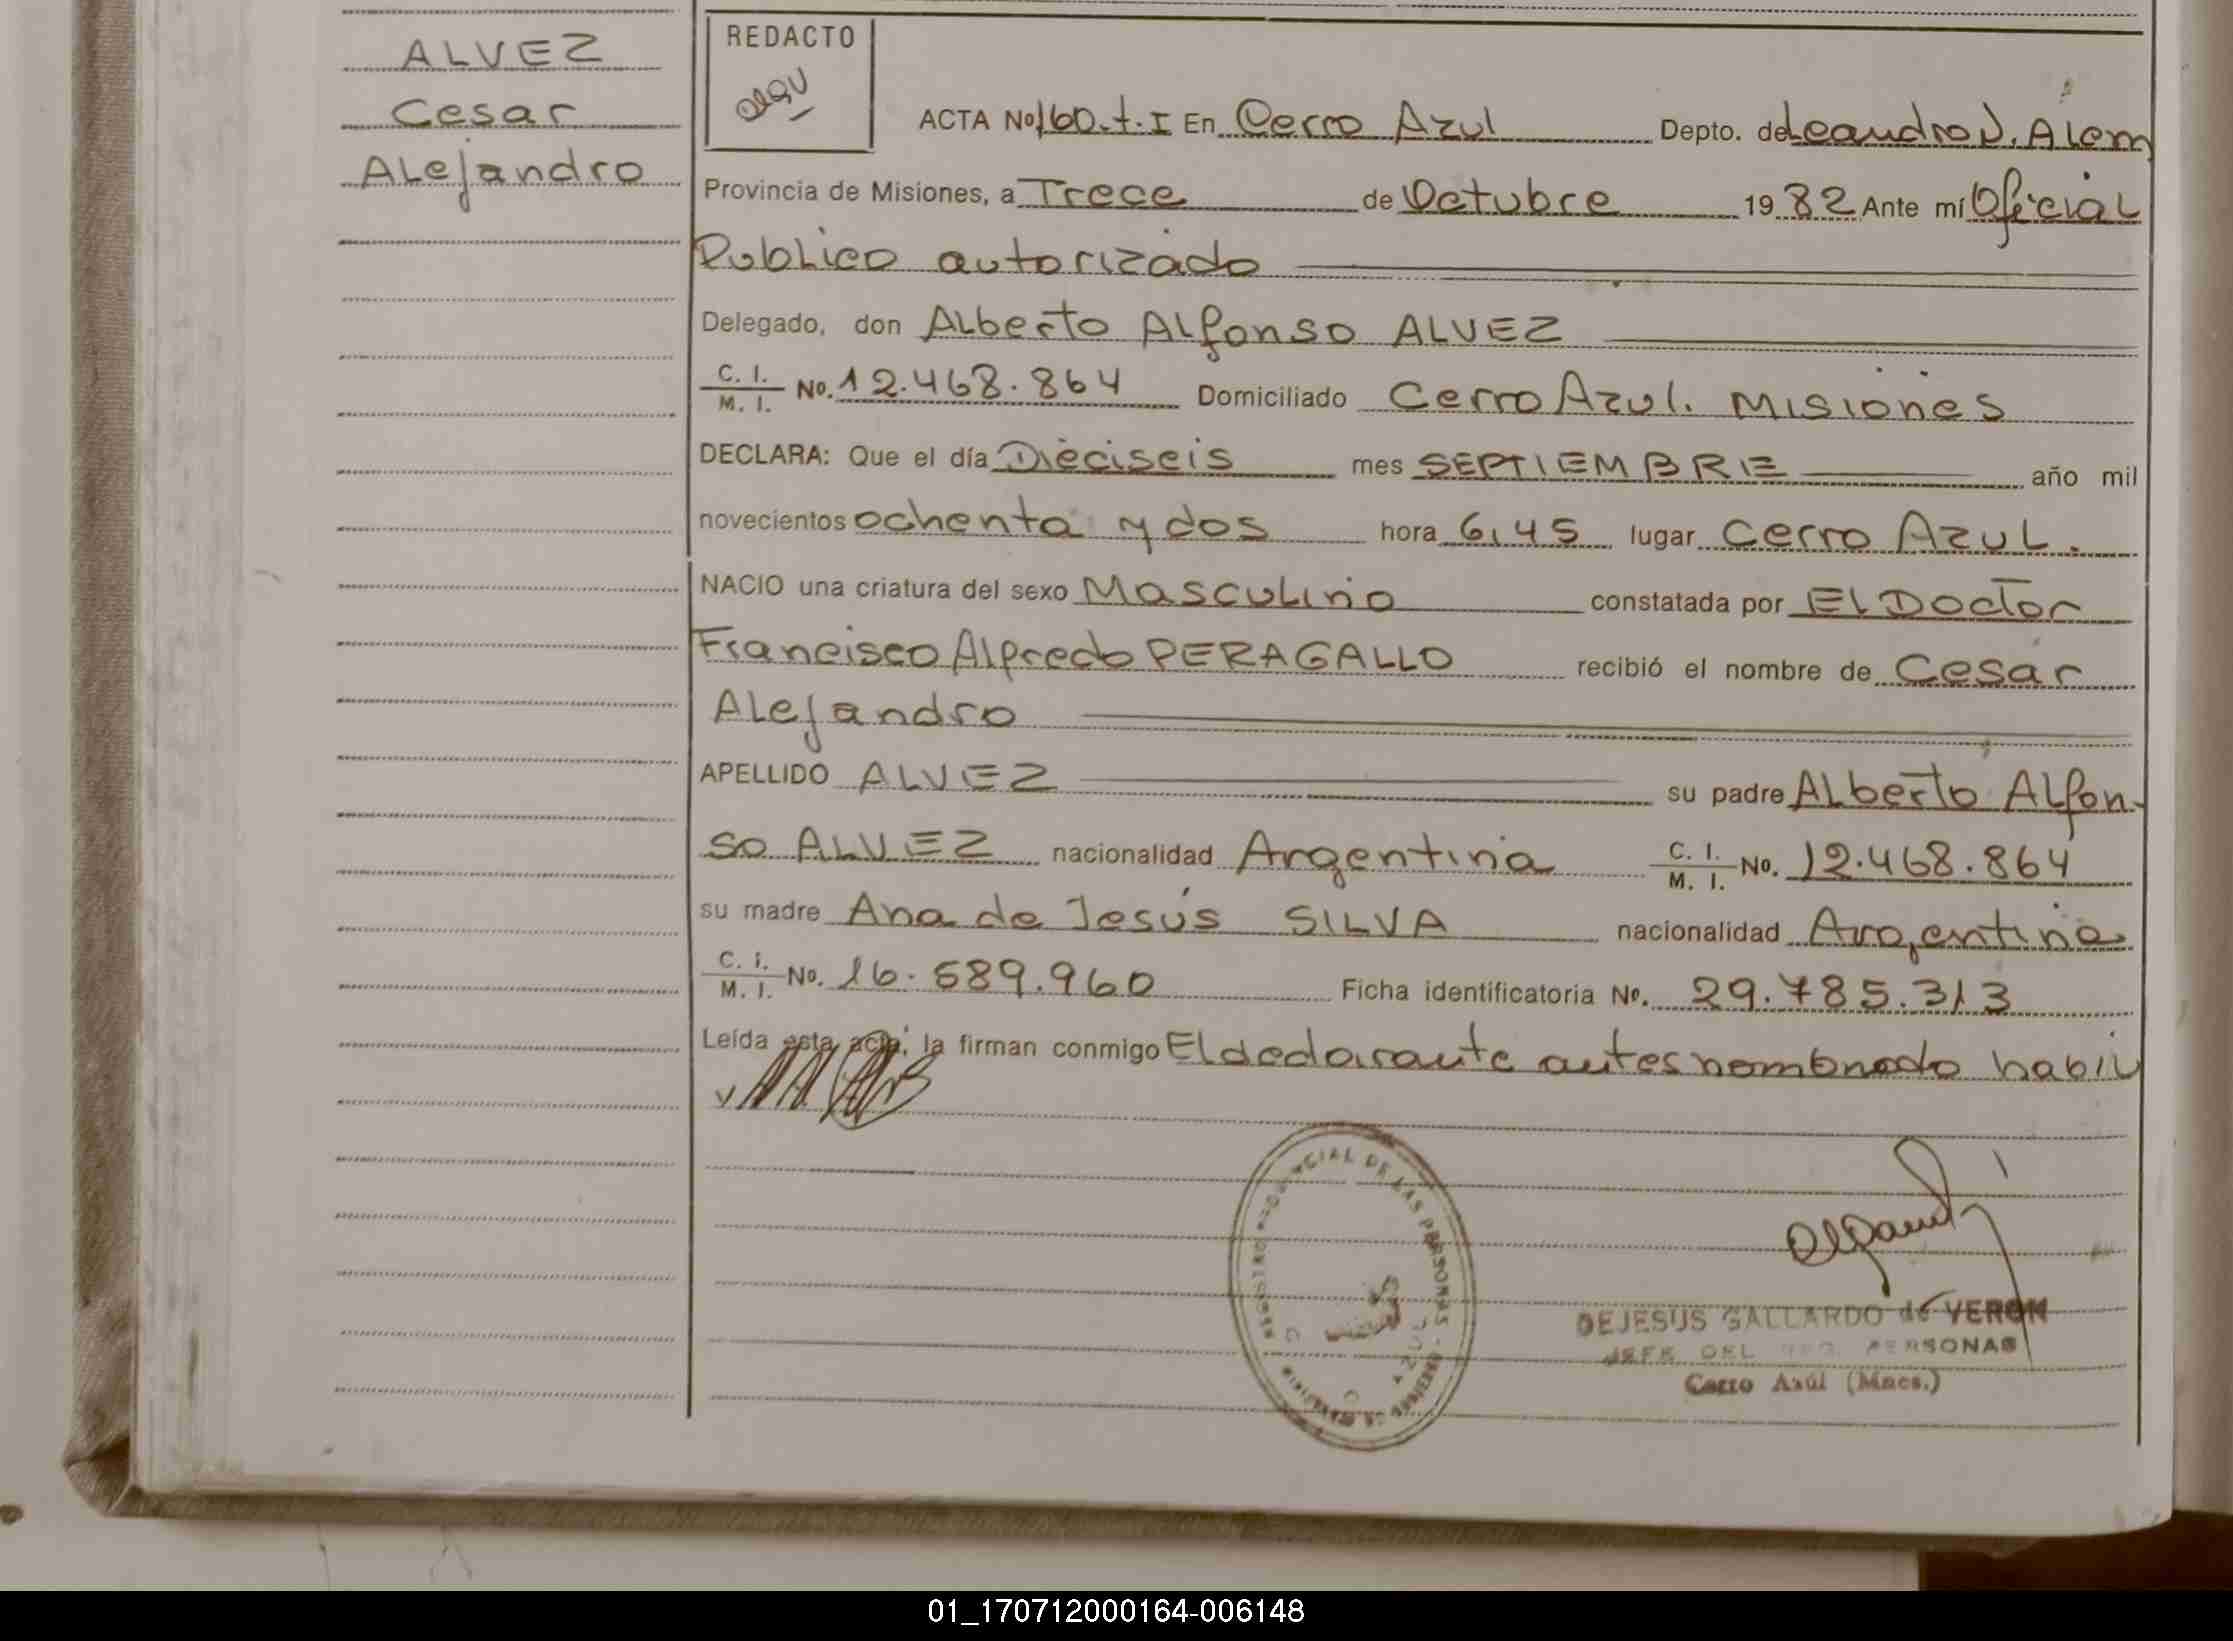 ALVEZ
Cesar
Alejandro
REDACTO
ACTA No 160.t.I En Cerro Azul Depto. de Leandro N. Alem
Provincia de Misiones, a Trece de Octubre 19 82 Ante mí Oficial
Publico autorizado
Delegado, don Alberto Alfonso ALVEZ
C. I. / M. I. No. 12.468.864 Domiciliado Cerro Azul. Misiones
DECLARA: Que el día Dieciseis mes SEPTIEMBRE año mil
novecientos ochenta y dos hora 6,45 lugar Cerro Azul.
NACIO una criatura del sexo Masculino constatada por El Doctor
Francisco Alfredo PERAGALLO recibió el nombre de Cesar
Alejandro
APELLIDO ALVEZ su padre Alberto Alfon-
so ALVEZ nacionalidad Argentina C. I. / M. I. No. 12.468.864
su madre Ana de Jesús SILVA nacionalidad Argentina
C. I. / M. I. No. 16.589.960 Ficha identificatoria No. 29.785.313
Leída esta acta, la firman conmigo El declarante antes nombrado habil
REGISTRO PROVINCIAL DE LAS PERSONAS
DEJESUS GALLARDO de VERON
JEFE DEL REG. PERSONAS
Cerro Azúl (Mnes.)
01_170712000164-006148